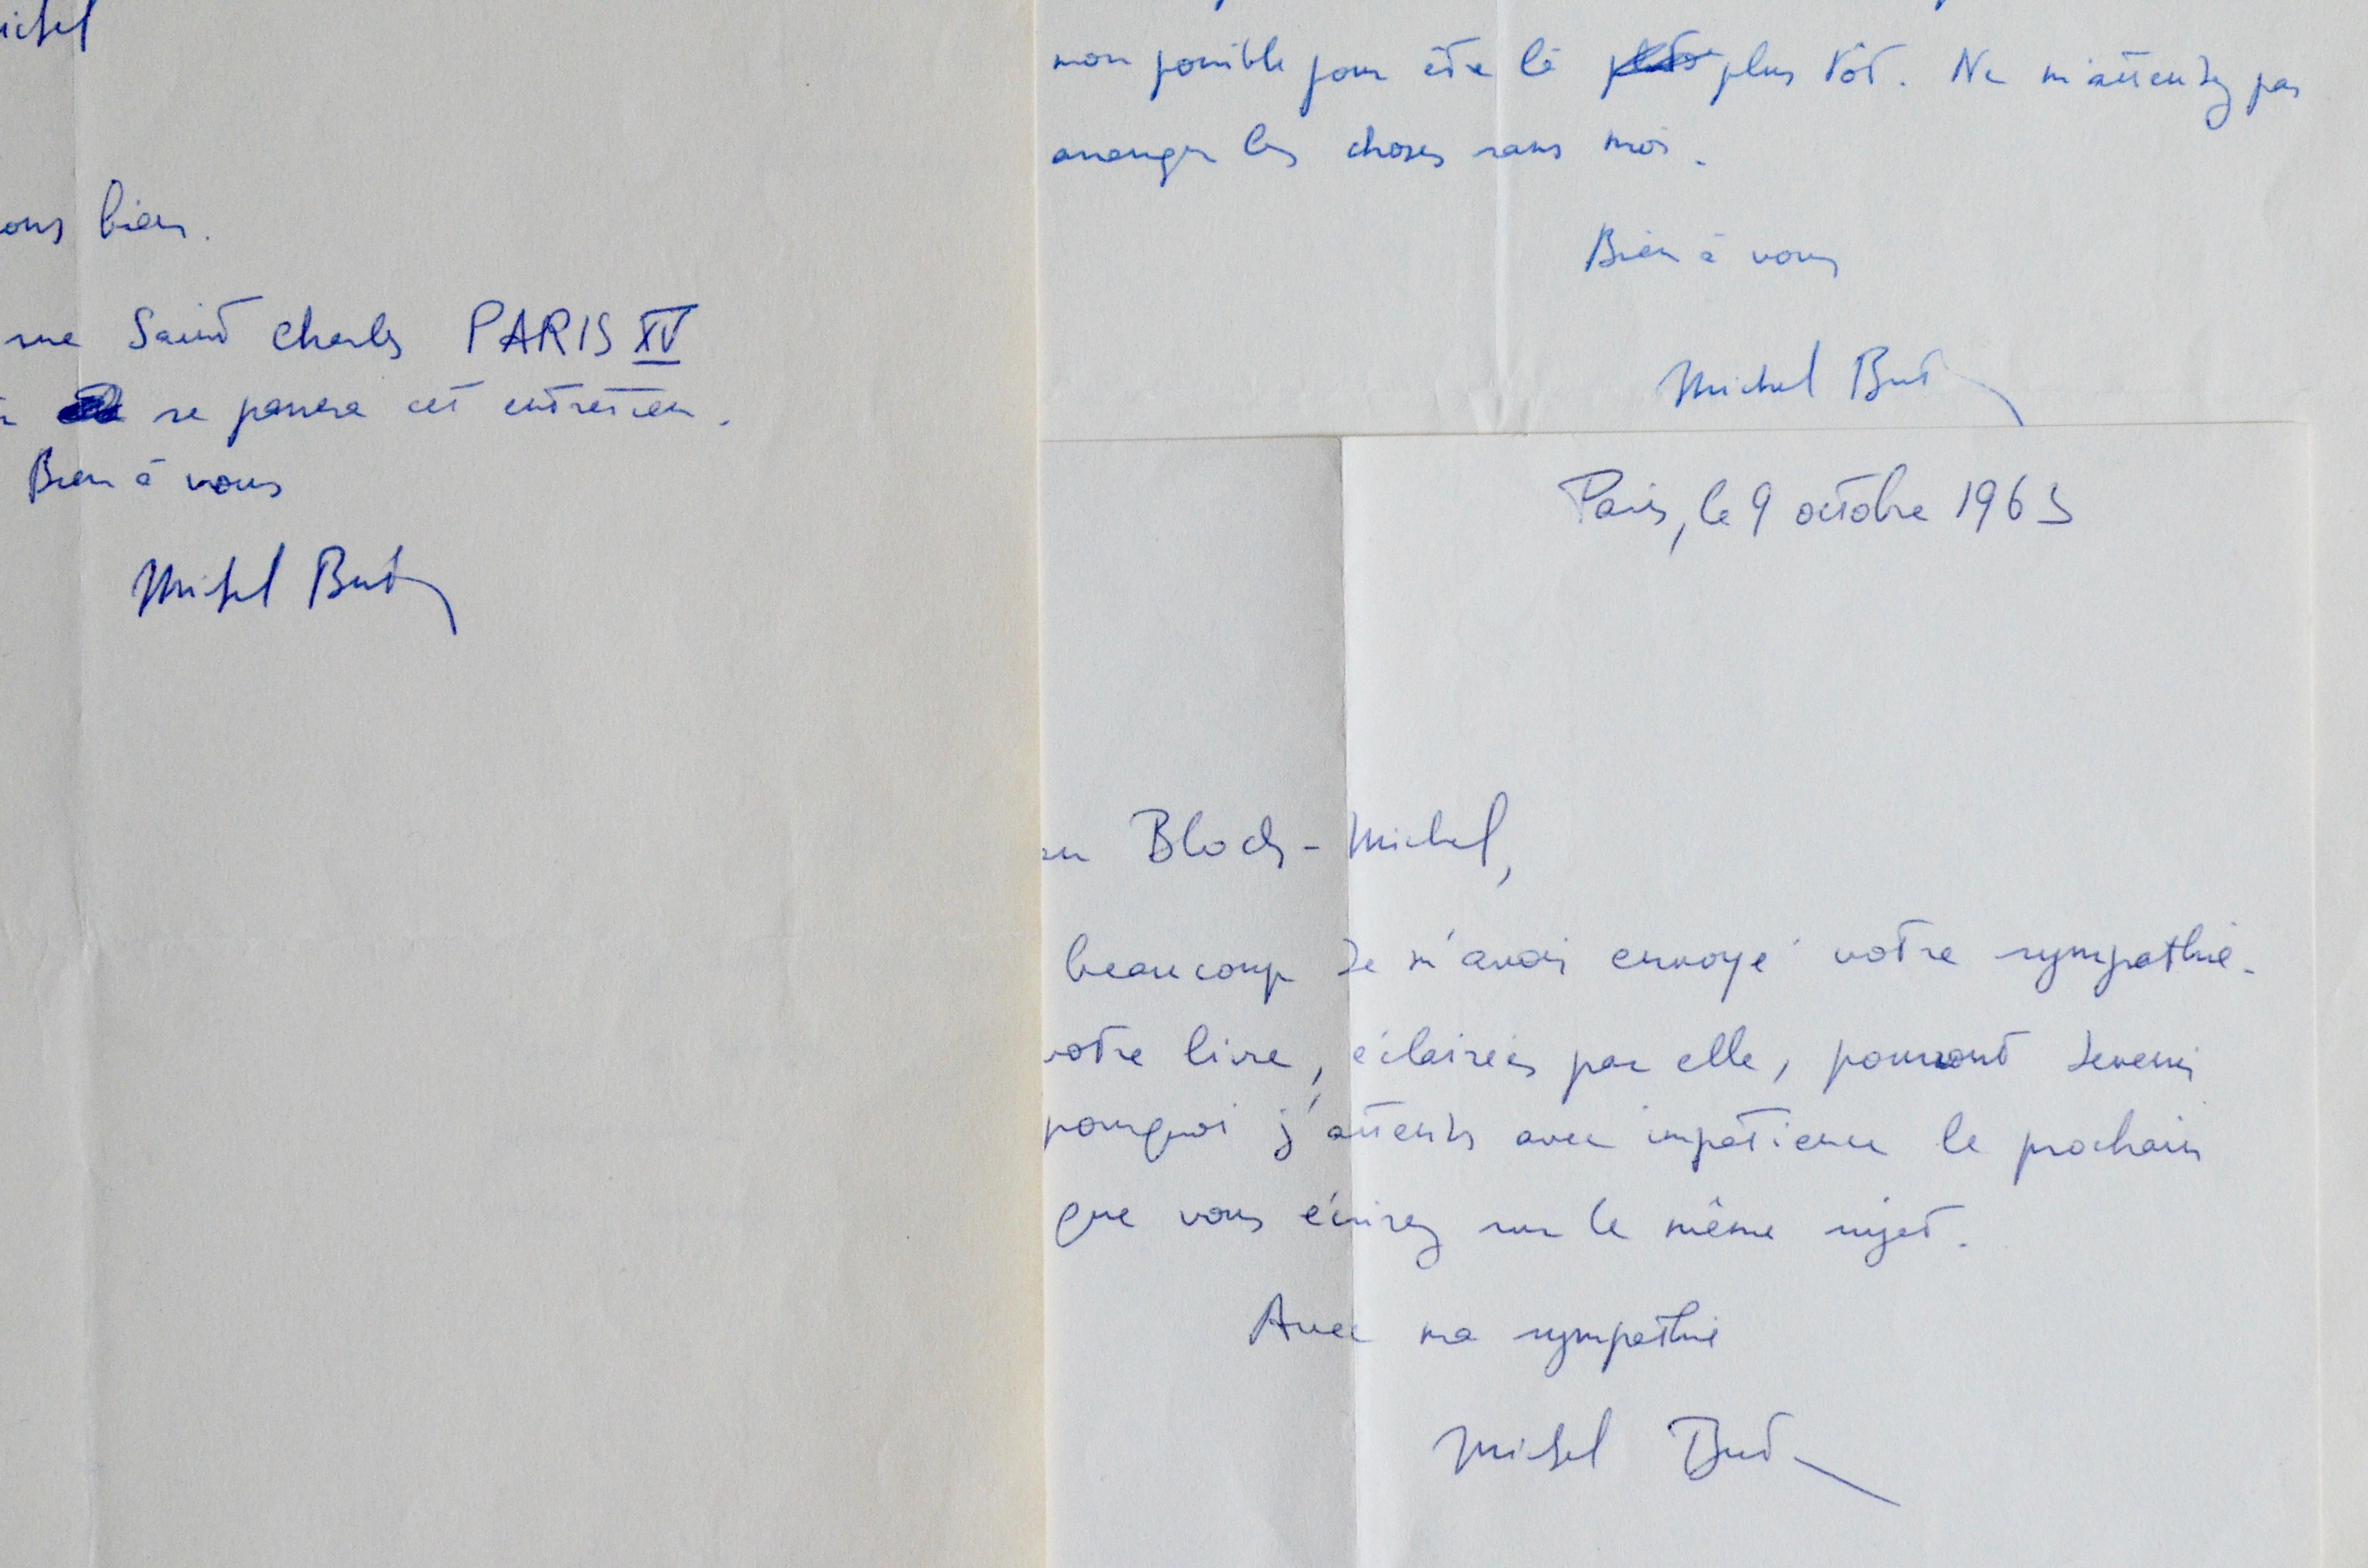 ichel
ous bien.
rue Saint Charles PARIS XV
se passera cet entretien.
Bien à vous
Michel Butor
mon possible pour être là plus tôt. Ne m'attendez pas
arranger les choses sans moi.
Bien à vous
Michel Butor
Paris, le 9 octobre 1963
Bloch-Michel,
beaucoup de m'avoir envoyé votre sympathie.
votre livre, éclairées par elle, pourront devenir
pourquoi j'attends avec impatience le prochain
que vous écrirez sur le même sujet.
Avec ma sympathie
Michel Butor